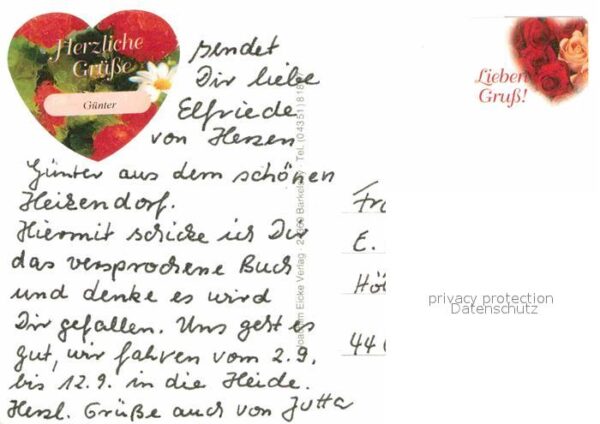 Herzliche
Grüße
Günter
sendet
Dir liebe
Elfriede
von Herzen
Günter aus dem schönen
Heikendorf.
Hiermit schicke ich Dir
das versprochene Buch
und denke es wird
Dir gefallen. Uns geht es
gut, wir fahren vom 2.9.
bis 12.9. in die Heide.
Herzl. Grüße auch von Jutta
Lieben
Gruß!
Fra
E.
Höl
44
privacy protection
Datenschutz
Eicke Verlag
Tel. (04351) 818